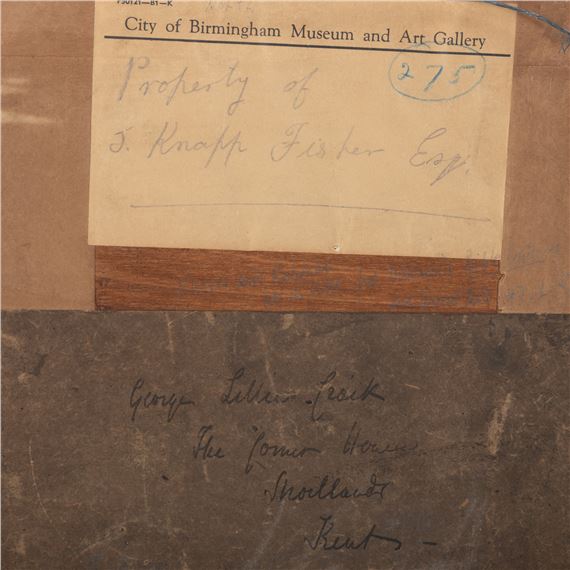 F50121—B1—K
City of Birmingham Museum and Art Gallery
275
Property of
J. Knapp Fisher Esq.
George Lillie Craik
The Corner House
Shortlands
Kent